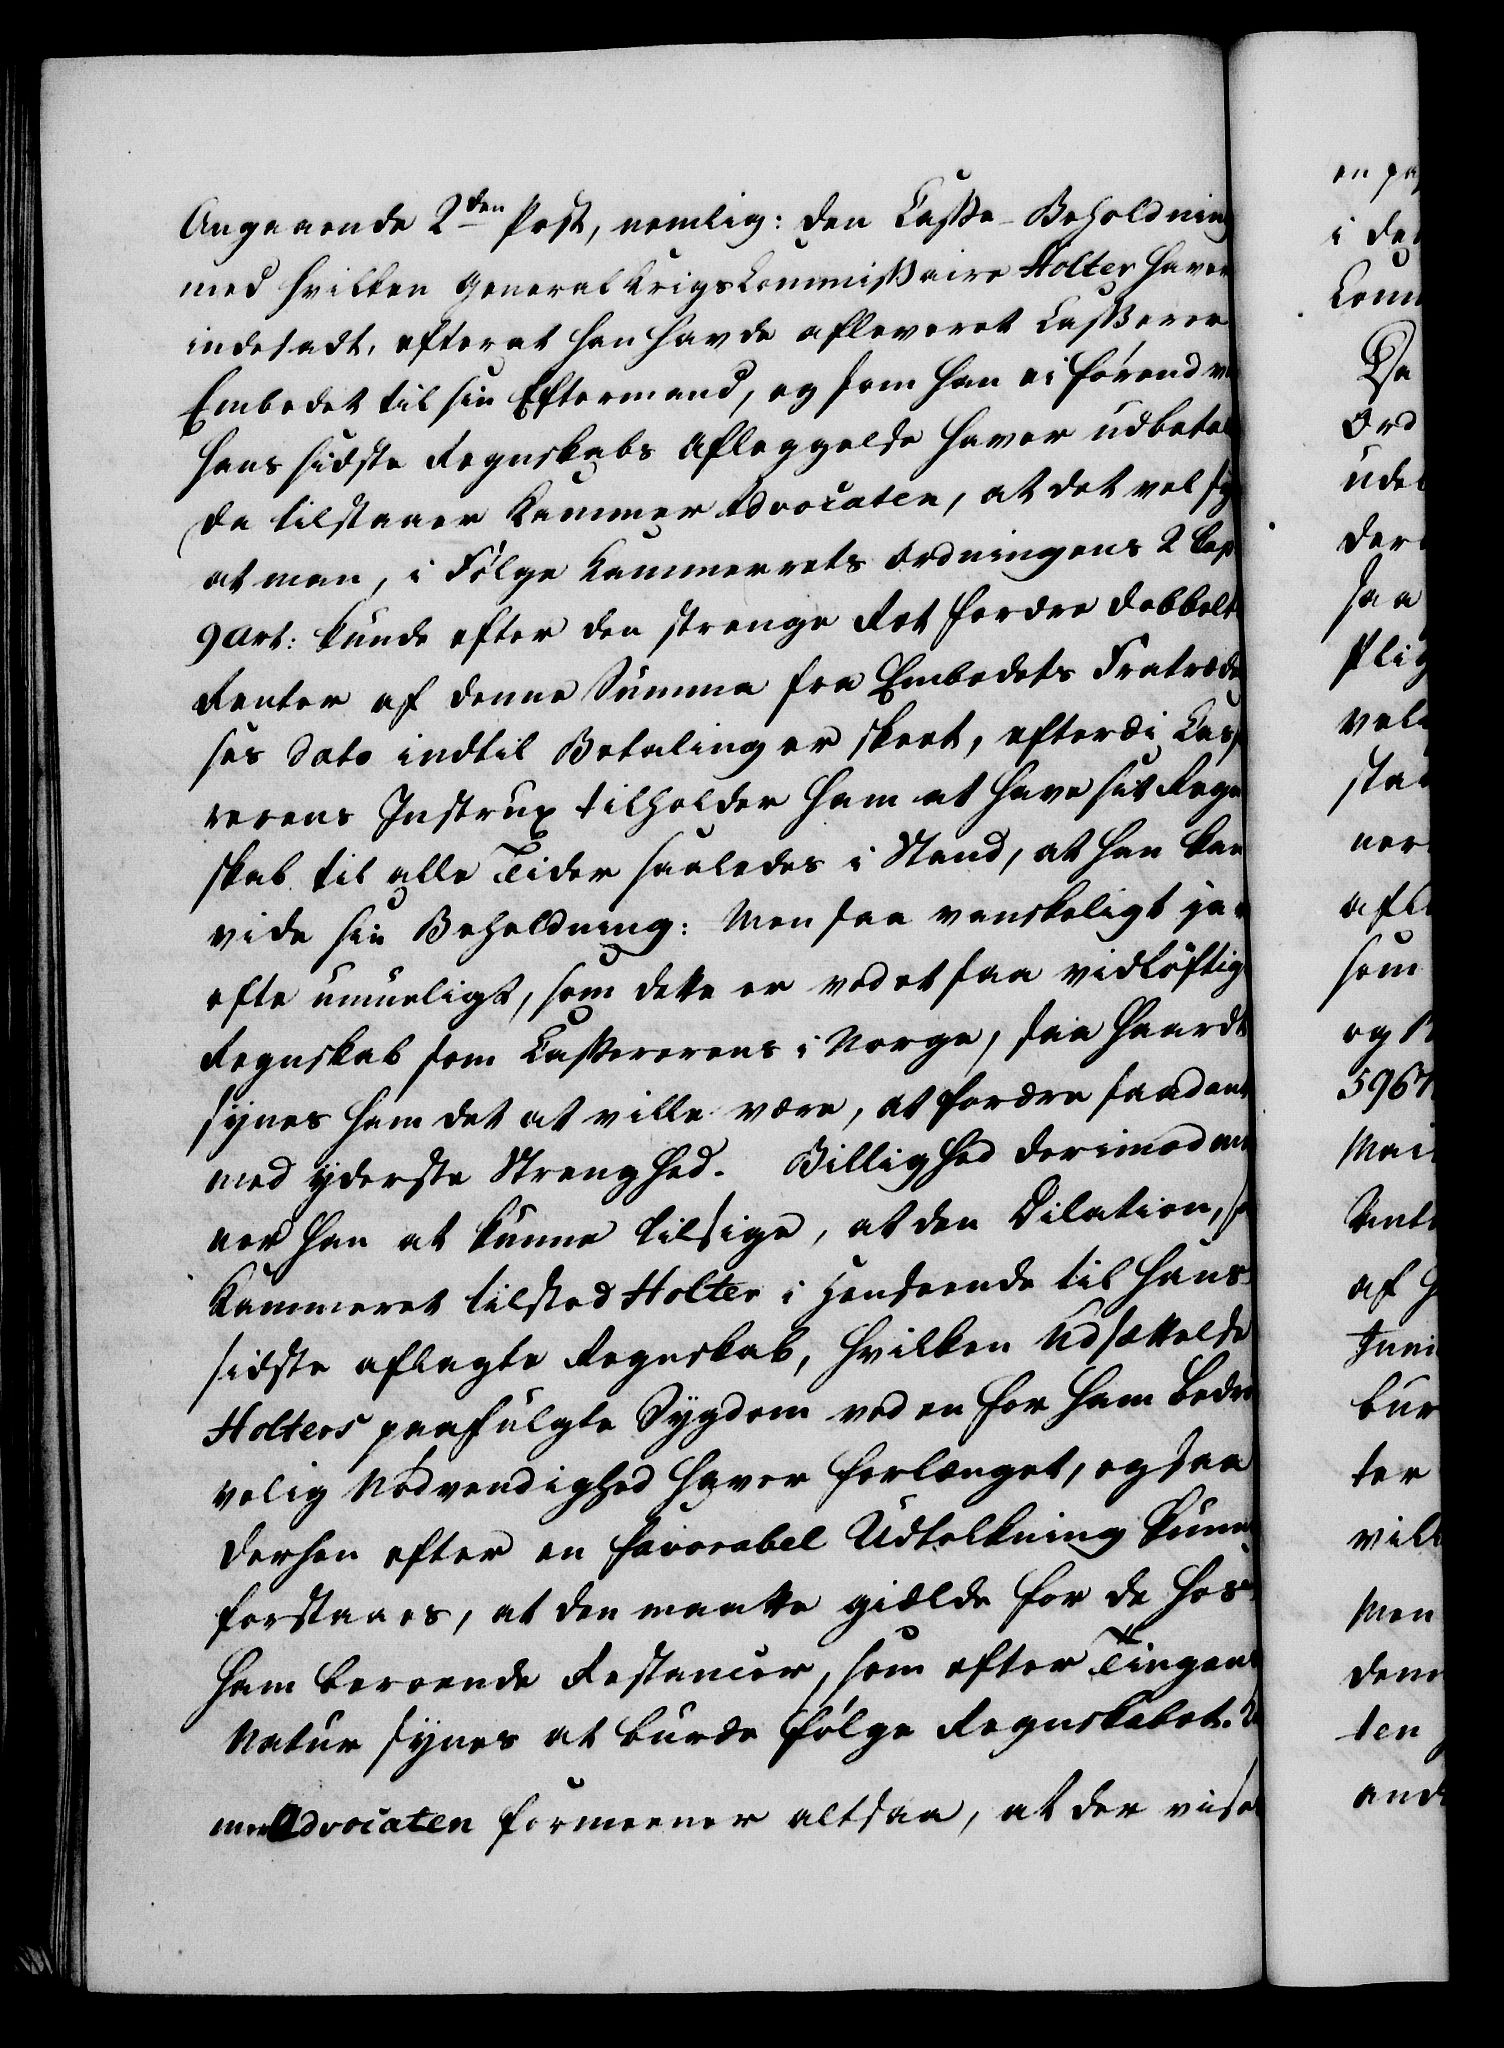 Angaaende 2den Post, nemlig: den Casse-Beholdning
med hvilken General Krigs Commissaire Holter haver
indesadt, efterat han havde afleveret Casserer
Embedet til sin Eftermand, og som han ei förend v
hans sidste Regnskabs Afleggelse haver udbetal
da tilstaaer Kammer Advocaten, at det vel sy
at man, i Fölge Kammerrets Ordningens 2 Cap
9 Art: kunde efter den strenge Ret fordre dobbelt
Renter af denne Summa fra Embedets Fratræde
ses Dato indtil Betaling er skeet, efterdi Cass
rerens Instrux tilholder ham at have sit Regn
skab til alle Tider saaledes i Stand, at han kan
vide sin Beholdning: Men saa vanskeligt ja
ofte umueligt, som dette er ved et saa vidlöftig
Regnskab som Cassererens i Norge, saa haardt
synes ham det at ville være, at fordre saadant
med yderste Strenghed. Billighed derimod me
ner han at kunne tilsige, at den Dilation, s
Kammeret tilstod Holter i Henseende til hans
sidste aflagte Regnskab, hvilken Udsættelse
Holters paafulgte Sygdom ved en for ham bedrö
velig Nödvendighed haver forlænget, og saa
derhen efter en favorabel Udtolkning kunn
forstaaes, at den maatte gielde for de hos
ham beroende Restancer, som efter Tingens
Natur synes at burde fölge Regnskabet.
mer Advocaten formeener altsaa, at der vise
i de
Da
Ord
ude
der
saa
Plig
vel
sta
ner
afl
som
og
5967
Mai
af
Juni
bur
ter
vil
Men
den
ten
and